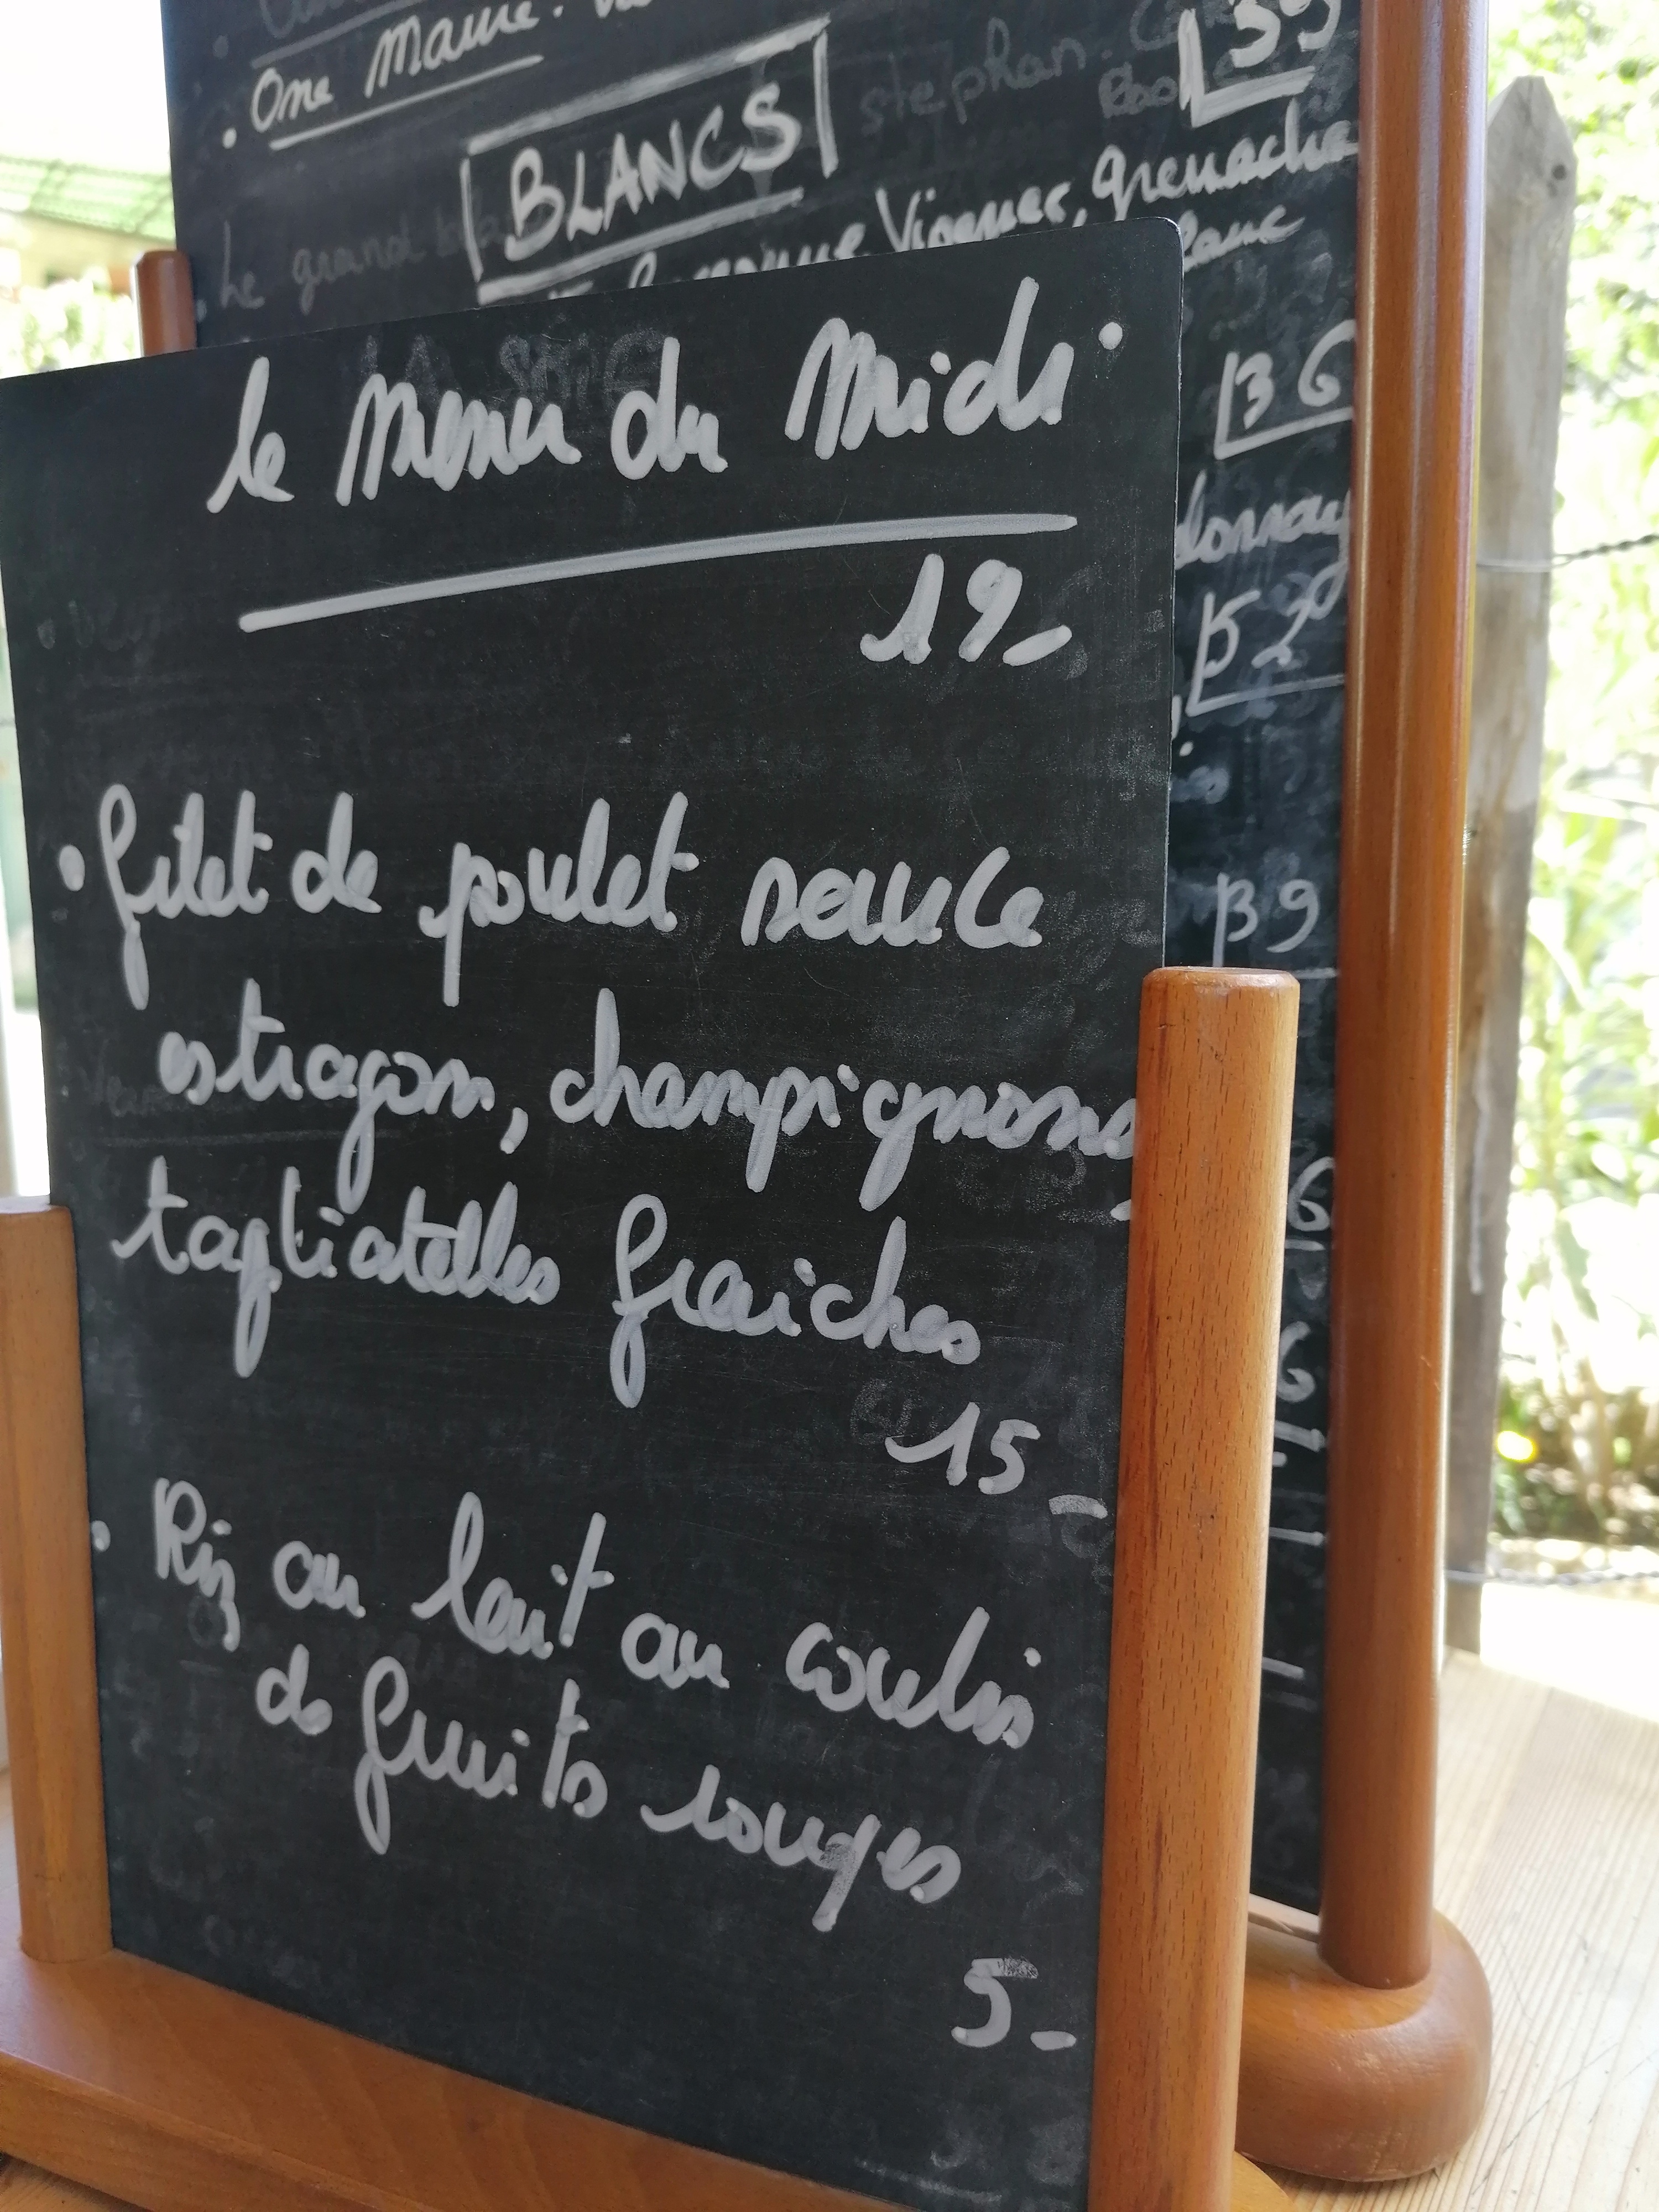 One
BLANCS
stephan.
39
Le grand
Viognier, grenache
blanc
36
52
39
6
6
le Menu du Midi
19-
• filet de poulet sauce
estragon, champignons
tagliatelles fraiches
15-
• Riz au lait au coulis
de fruits rouges
5-